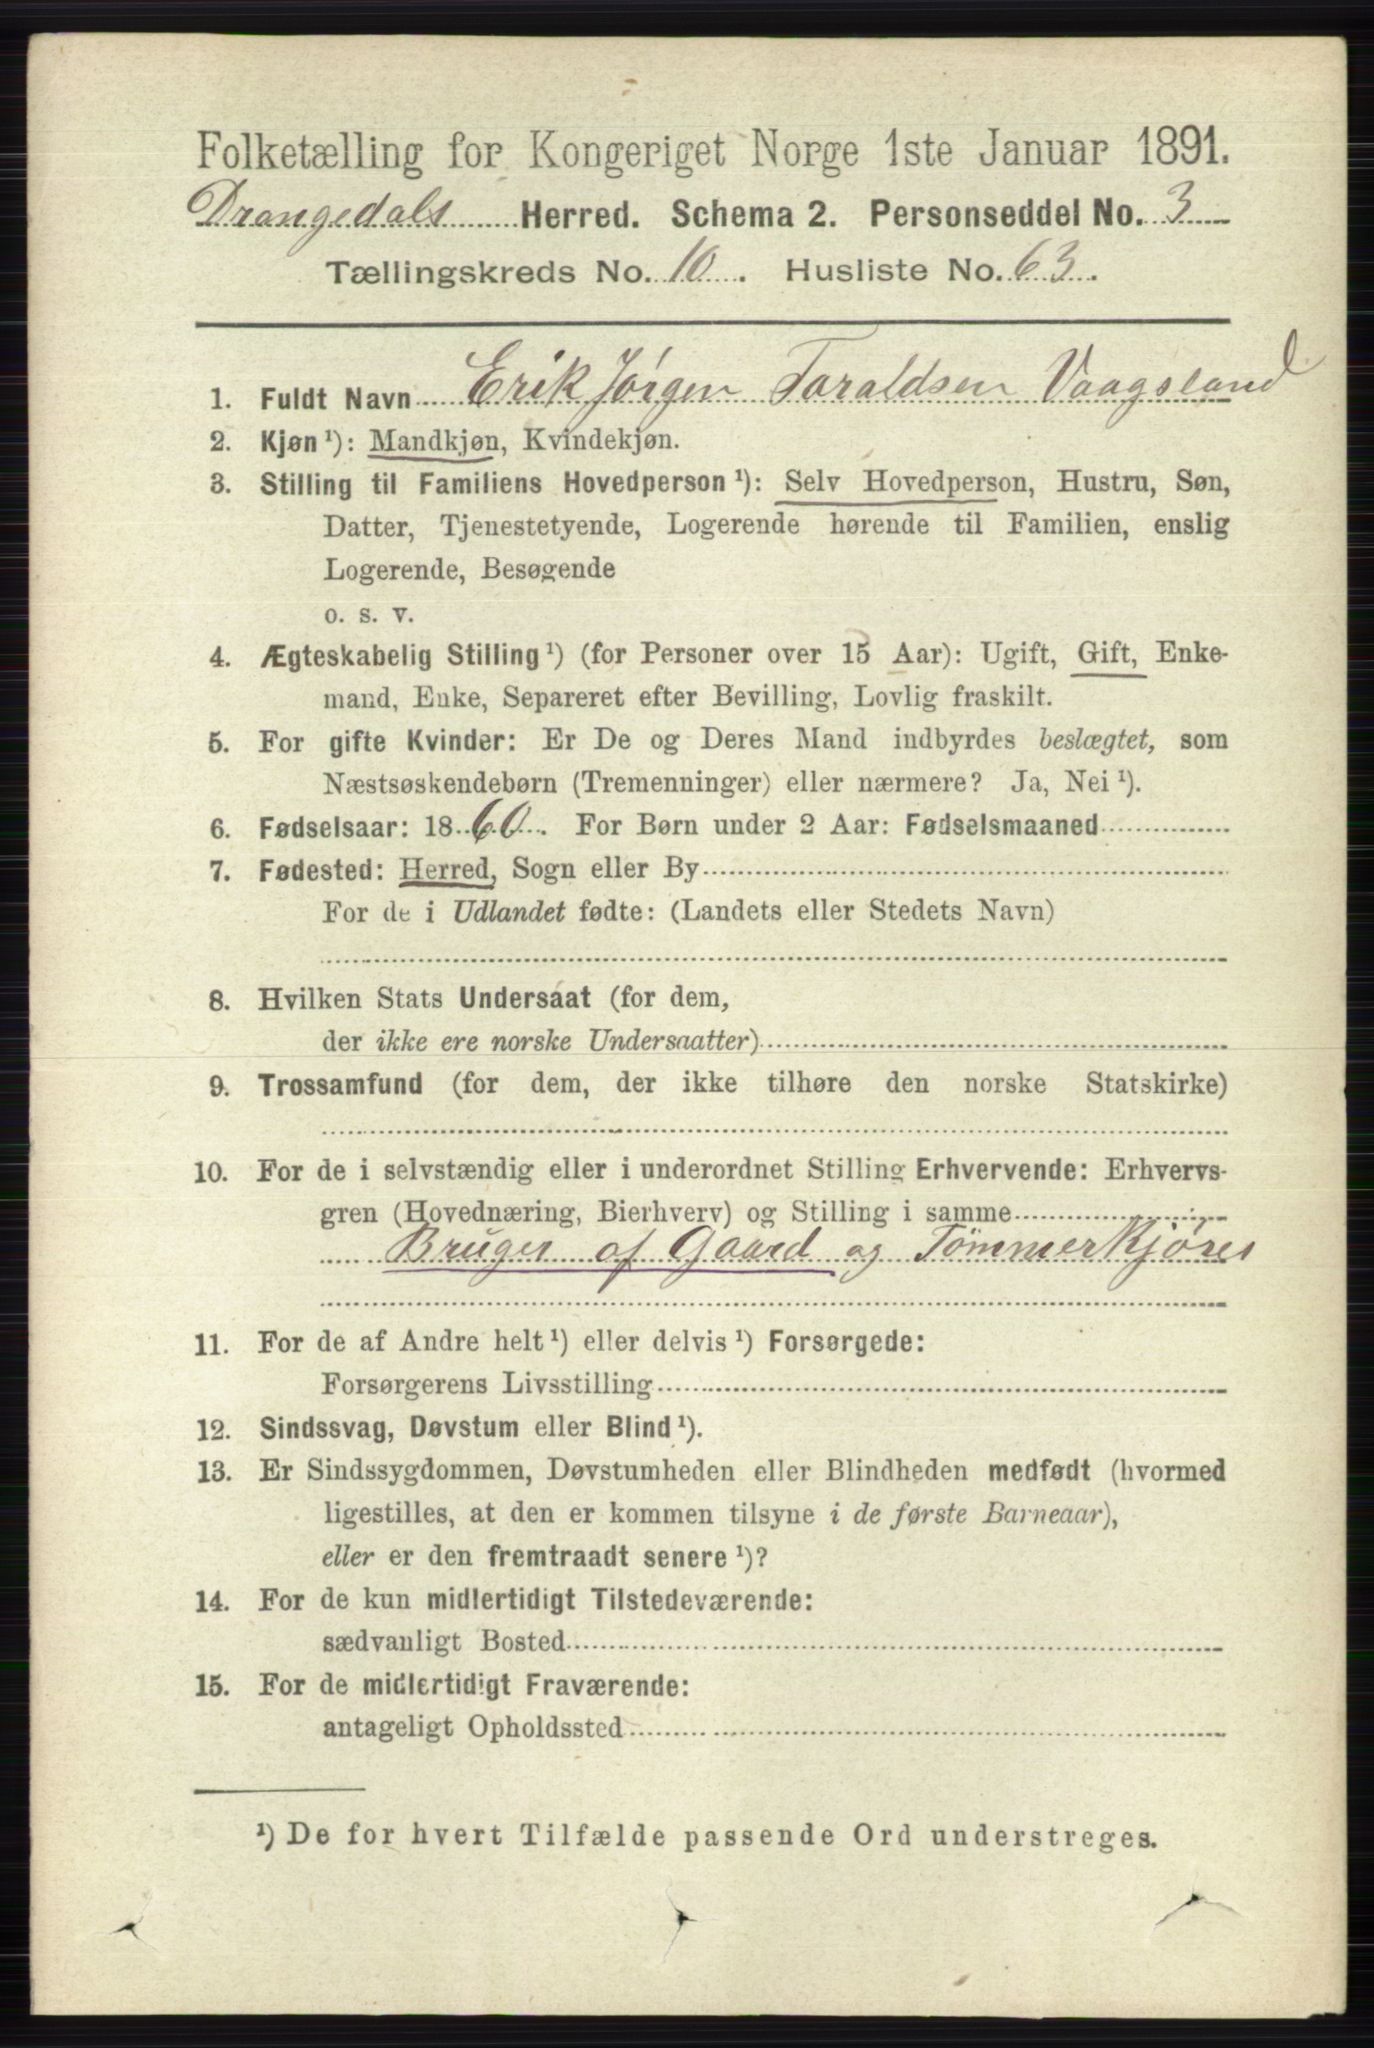 Folketælling for Kongeriget Norge 1ste Januar 1891.
Drangedals Herred. Schema 2. Personseddel No. 3
Tællingskreds No. 10. Husliste No. 63.
1. Fuldt Navn Erik Jörgen Taraldsen Vaagsland
2. Kjøn ¹): Mandkjøn, Kvindekjøn.
3. Stilling til Familiens Hovedperson ¹): Selv Hovedperson, Hustru, Søn,
Datter, Tjenestetyende, Logerende hørende til Familien, enslig
Logerende, Besøgende
o. s. v.
4. Ægteskabelig Stilling ¹) (for Personer over 15 Aar): Ugift, Gift, Enke-
mand, Enke, Separeret efter Bevilling, Lovlig fraskilt.
5. For gifte Kvinder: Er De og Deres Mand indbyrdes beslægtet, som
Næstsøskendebørn (Tremenninger) eller nærmere? Ja, Nei ¹).
6. Fødselsaar: 1860. For Børn under 2 Aar: Fødselsmaaned
7. Fødested: Herred, Sogn eller By
For de i Udlandet fødte: (Landets eller Stedets Navn)
8. Hvilken Stats Undersaat (for dem,
der ikke ere norske Undersaatter)
9. Trossamfund (for dem, der ikke tilhøre den norske Statskirke)
10. For de i selvstændig eller i underordnet Stilling Erhvervende: Erhvervs-
gren (Hovednæring, Bierhverv) og Stilling i samme
Bruger af Gaard og Tömmerkjörer
11. For de af Andre helt ¹) eller delvis ¹) Forsørgede:
Forsørgerens Livsstilling
12. Sindssvag, Døvstum eller Blind ¹).
13. Er Sindssygdommen, Døvstumheden eller Blindheden medfødt (hvormed
ligestilles, at den er kommen tilsyne i de første Barneaar),
eller er den fremtraadt senere ¹)?
14. For de kun midlertidigt Tilstedeværende:
sædvanligt Bosted
15. For de midlertidigt Fraværende:
antageligt Opholdssted
¹) De for hvert Tilfælde passende Ord understreges.